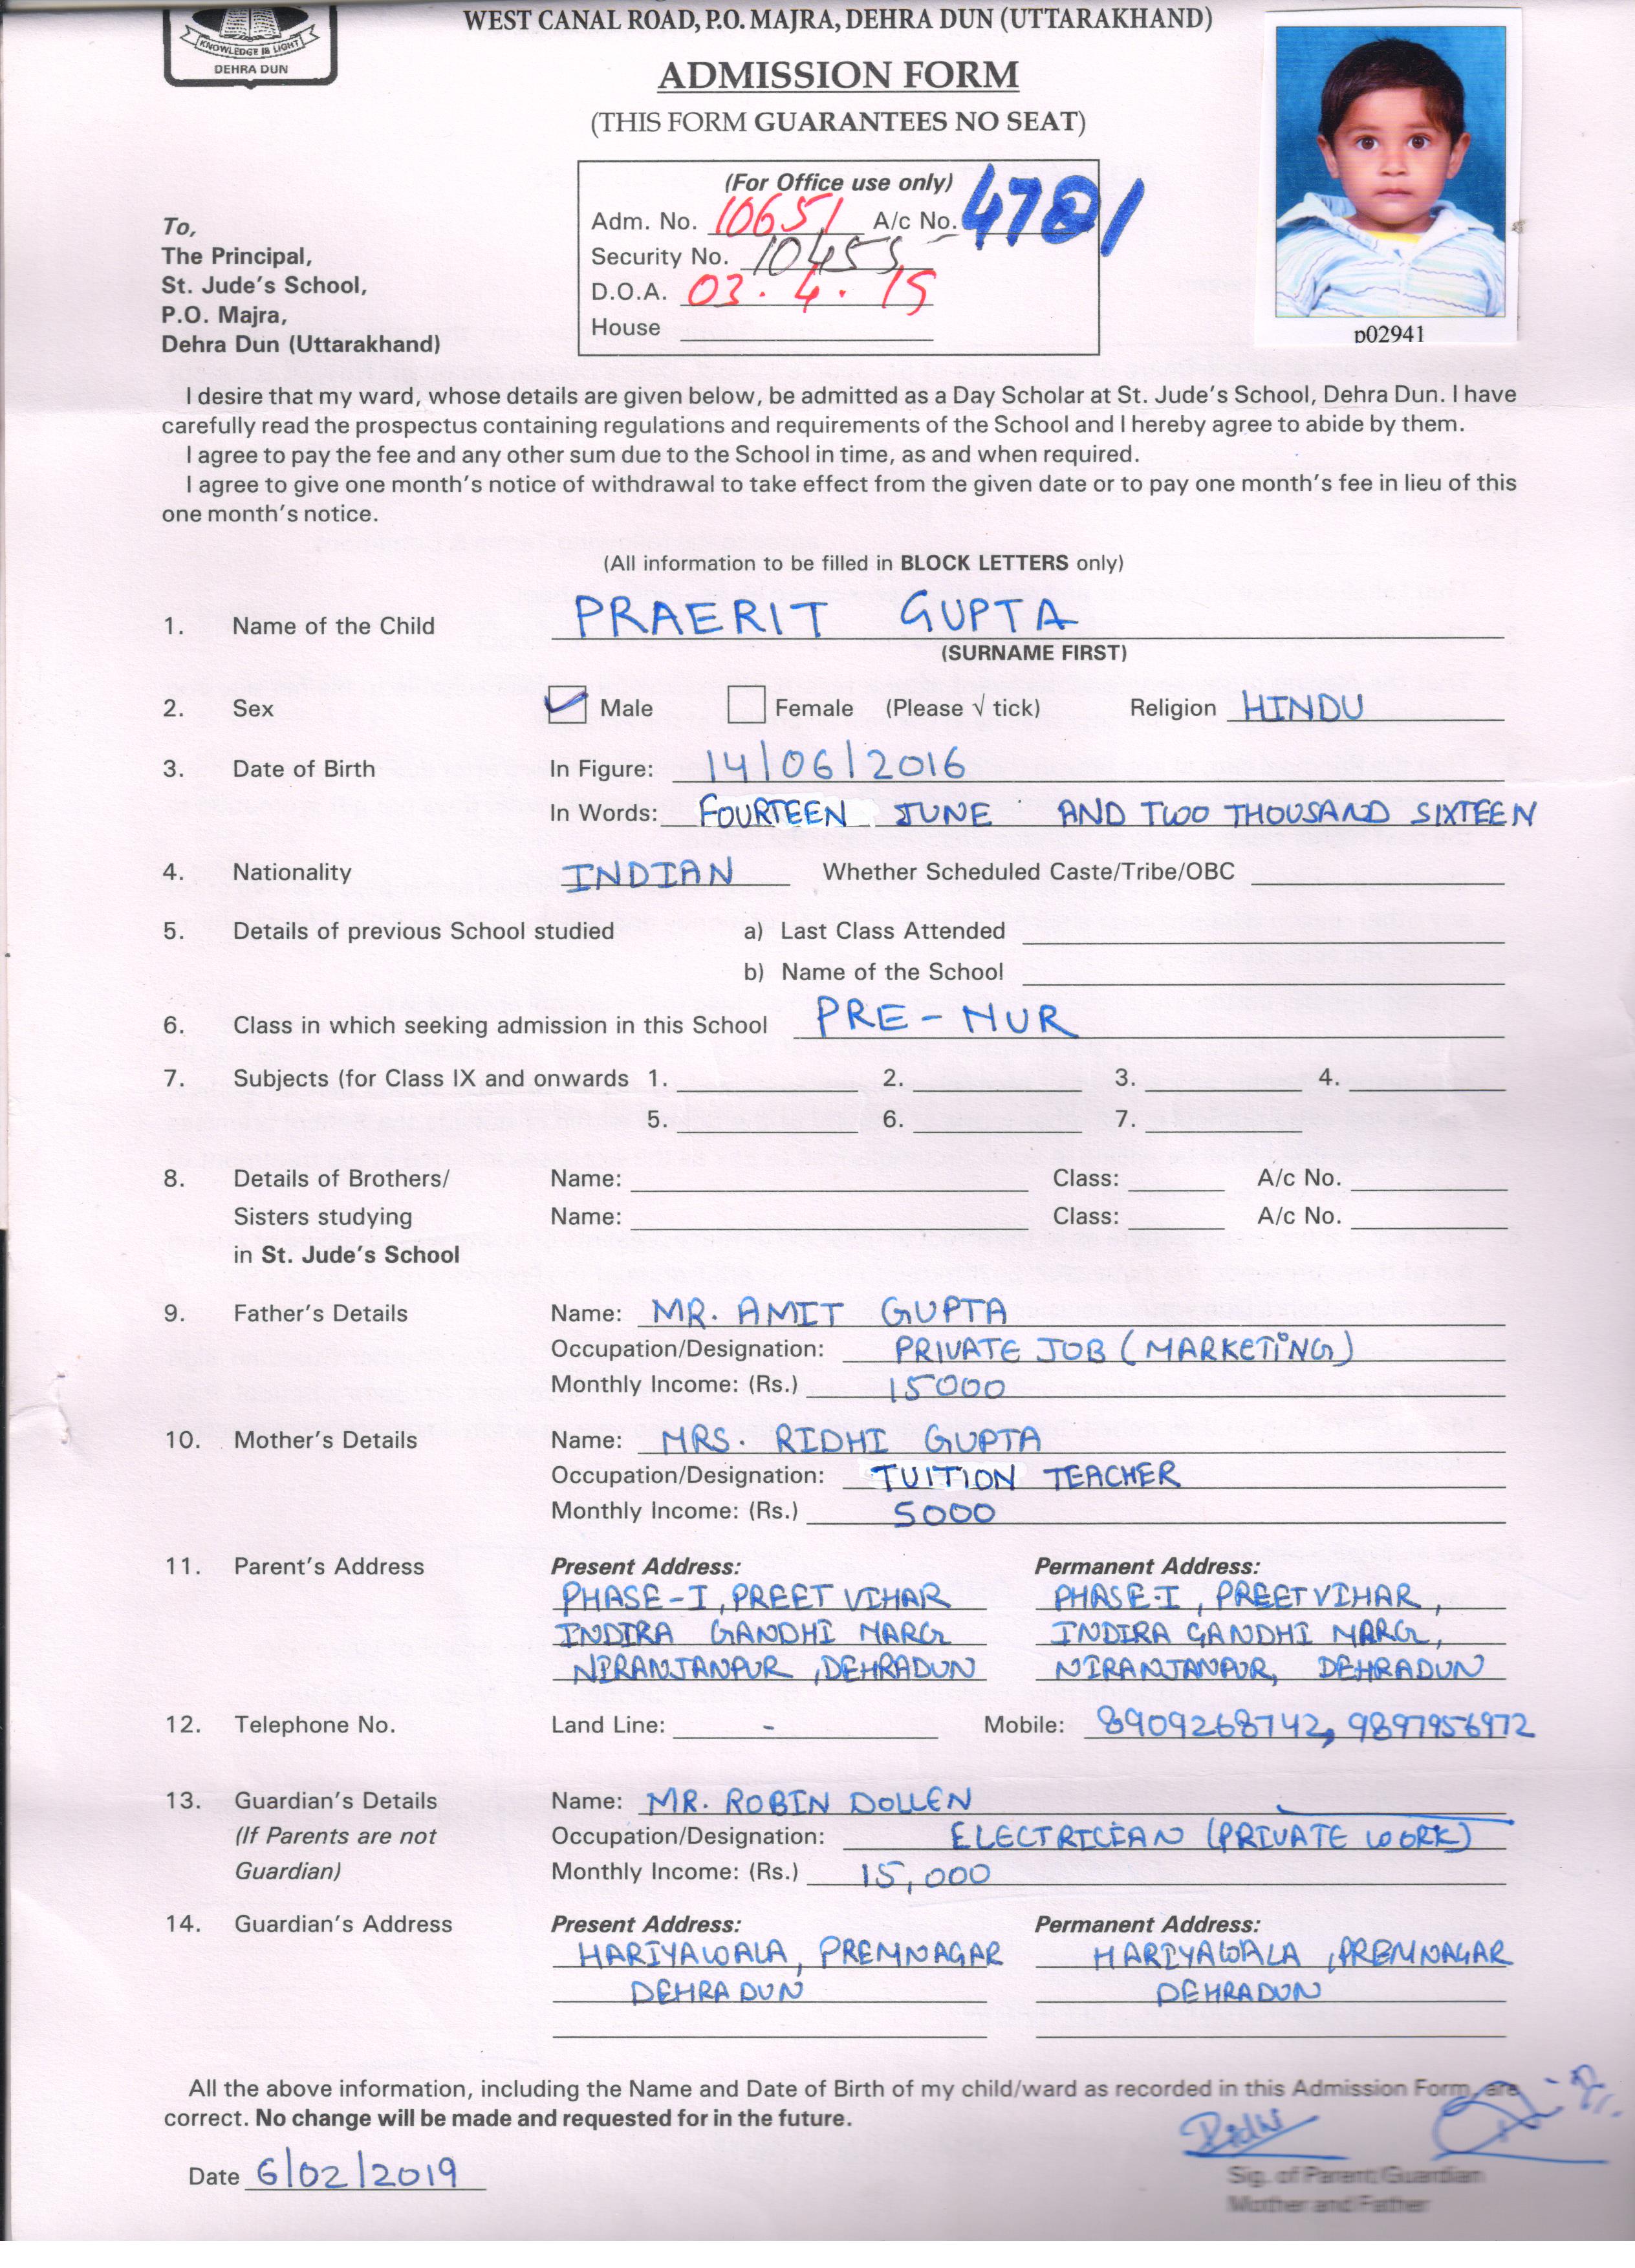 KNOWLEDGE IS LIGHT
DEHRA DUN
WEST CANAL ROAD, P.O. MAJRA, DEHRA DUN (UTTARAKHAND)
ADMISSION FORM
(THIS FORM GUARANTEES NO SEAT)
(For Office use only)
Adm. No. 10651 A/c No. 4781
Security No. 10455
D.O.A. 03.4.19
House
p02941
To,
The Principal,
St. Jude's School,
P.O. Majra,
Dehra Dun (Uttarakhand)
I desire that my ward, whose details are given below, be admitted as a Day Scholar at St. Jude's School, Dehra Dun. I have
carefully read the prospectus containing regulations and requirements of the School and I hereby agree to abide by them.
I agree to pay the fee and any other sum due to the School in time, as and when required.
I agree to give one month's notice of withdrawal to take effect from the given date or to pay one month's fee in lieu of this
one month's notice.
(All information to be filled in BLOCK LETTERS only)
1. Name of the Child PRAERIT GUPTA
(SURNAME FIRST)
2. Sex Male Female (Please √ tick) Religion HINDU
3. Date of Birth In Figure: 14/06/2016
In Words: FOURTEEN JUNE AND TWO THOUSAND SIXTEEN
4. Nationality INDIAN Whether Scheduled Caste/Tribe/OBC
5. Details of previous School studied a) Last Class Attended
b) Name of the School
6. Class in which seeking admission in this School PRE-NUR
7. Subjects (for Class IX and onwards 1. 2. 3. 4.
5. 6. 7.
8. Details of Brothers/ Name: Class: A/c No.
Sisters studying Name: Class: A/c No.
in St. Jude's School
9. Father's Details Name: MR. AMIT GUPTA
Occupation/Designation: PRIVATE JOB (MARKETING)
Monthly Income: (Rs.) 15000
10. Mother's Details Name: MRS. RIDHI GUPTA
Occupation/Designation: TUITION TEACHER
Monthly Income: (Rs.) 5000
11. Parent's Address Present Address: Permanent Address:
PHASE-I, PREET VIHAR PHASE-I, PREET VIHAR,
INDIRA GANDHI MARG INDIRA GANDHI MARG,
NIRANJANPUR, DEHRADUN NIRANJANPUR, DEHRADUN
12. Telephone No. Land Line: - Mobile: 8909268742, 9897956972
13. Guardian's Details Name: MR. ROBIN DOLLEN
(If Parents are not Occupation/Designation: ELECTRICIAN (PRIVATE WORK)
Guardian) Monthly Income: (Rs.) 15,000
14. Guardian's Address Present Address: Permanent Address:
HARIYAWALA, PREMNAGAR HARIYAWALA, PREMNAGAR
DEHRADUN DEHRADUN
All the above information, including the Name and Date of Birth of my child/ward as recorded in this Admission Form, are
correct. No change will be made and requested for in the future.
Ridhi
Date 6/02/2019
Sig. of Parent/Guardian
Mother and Father